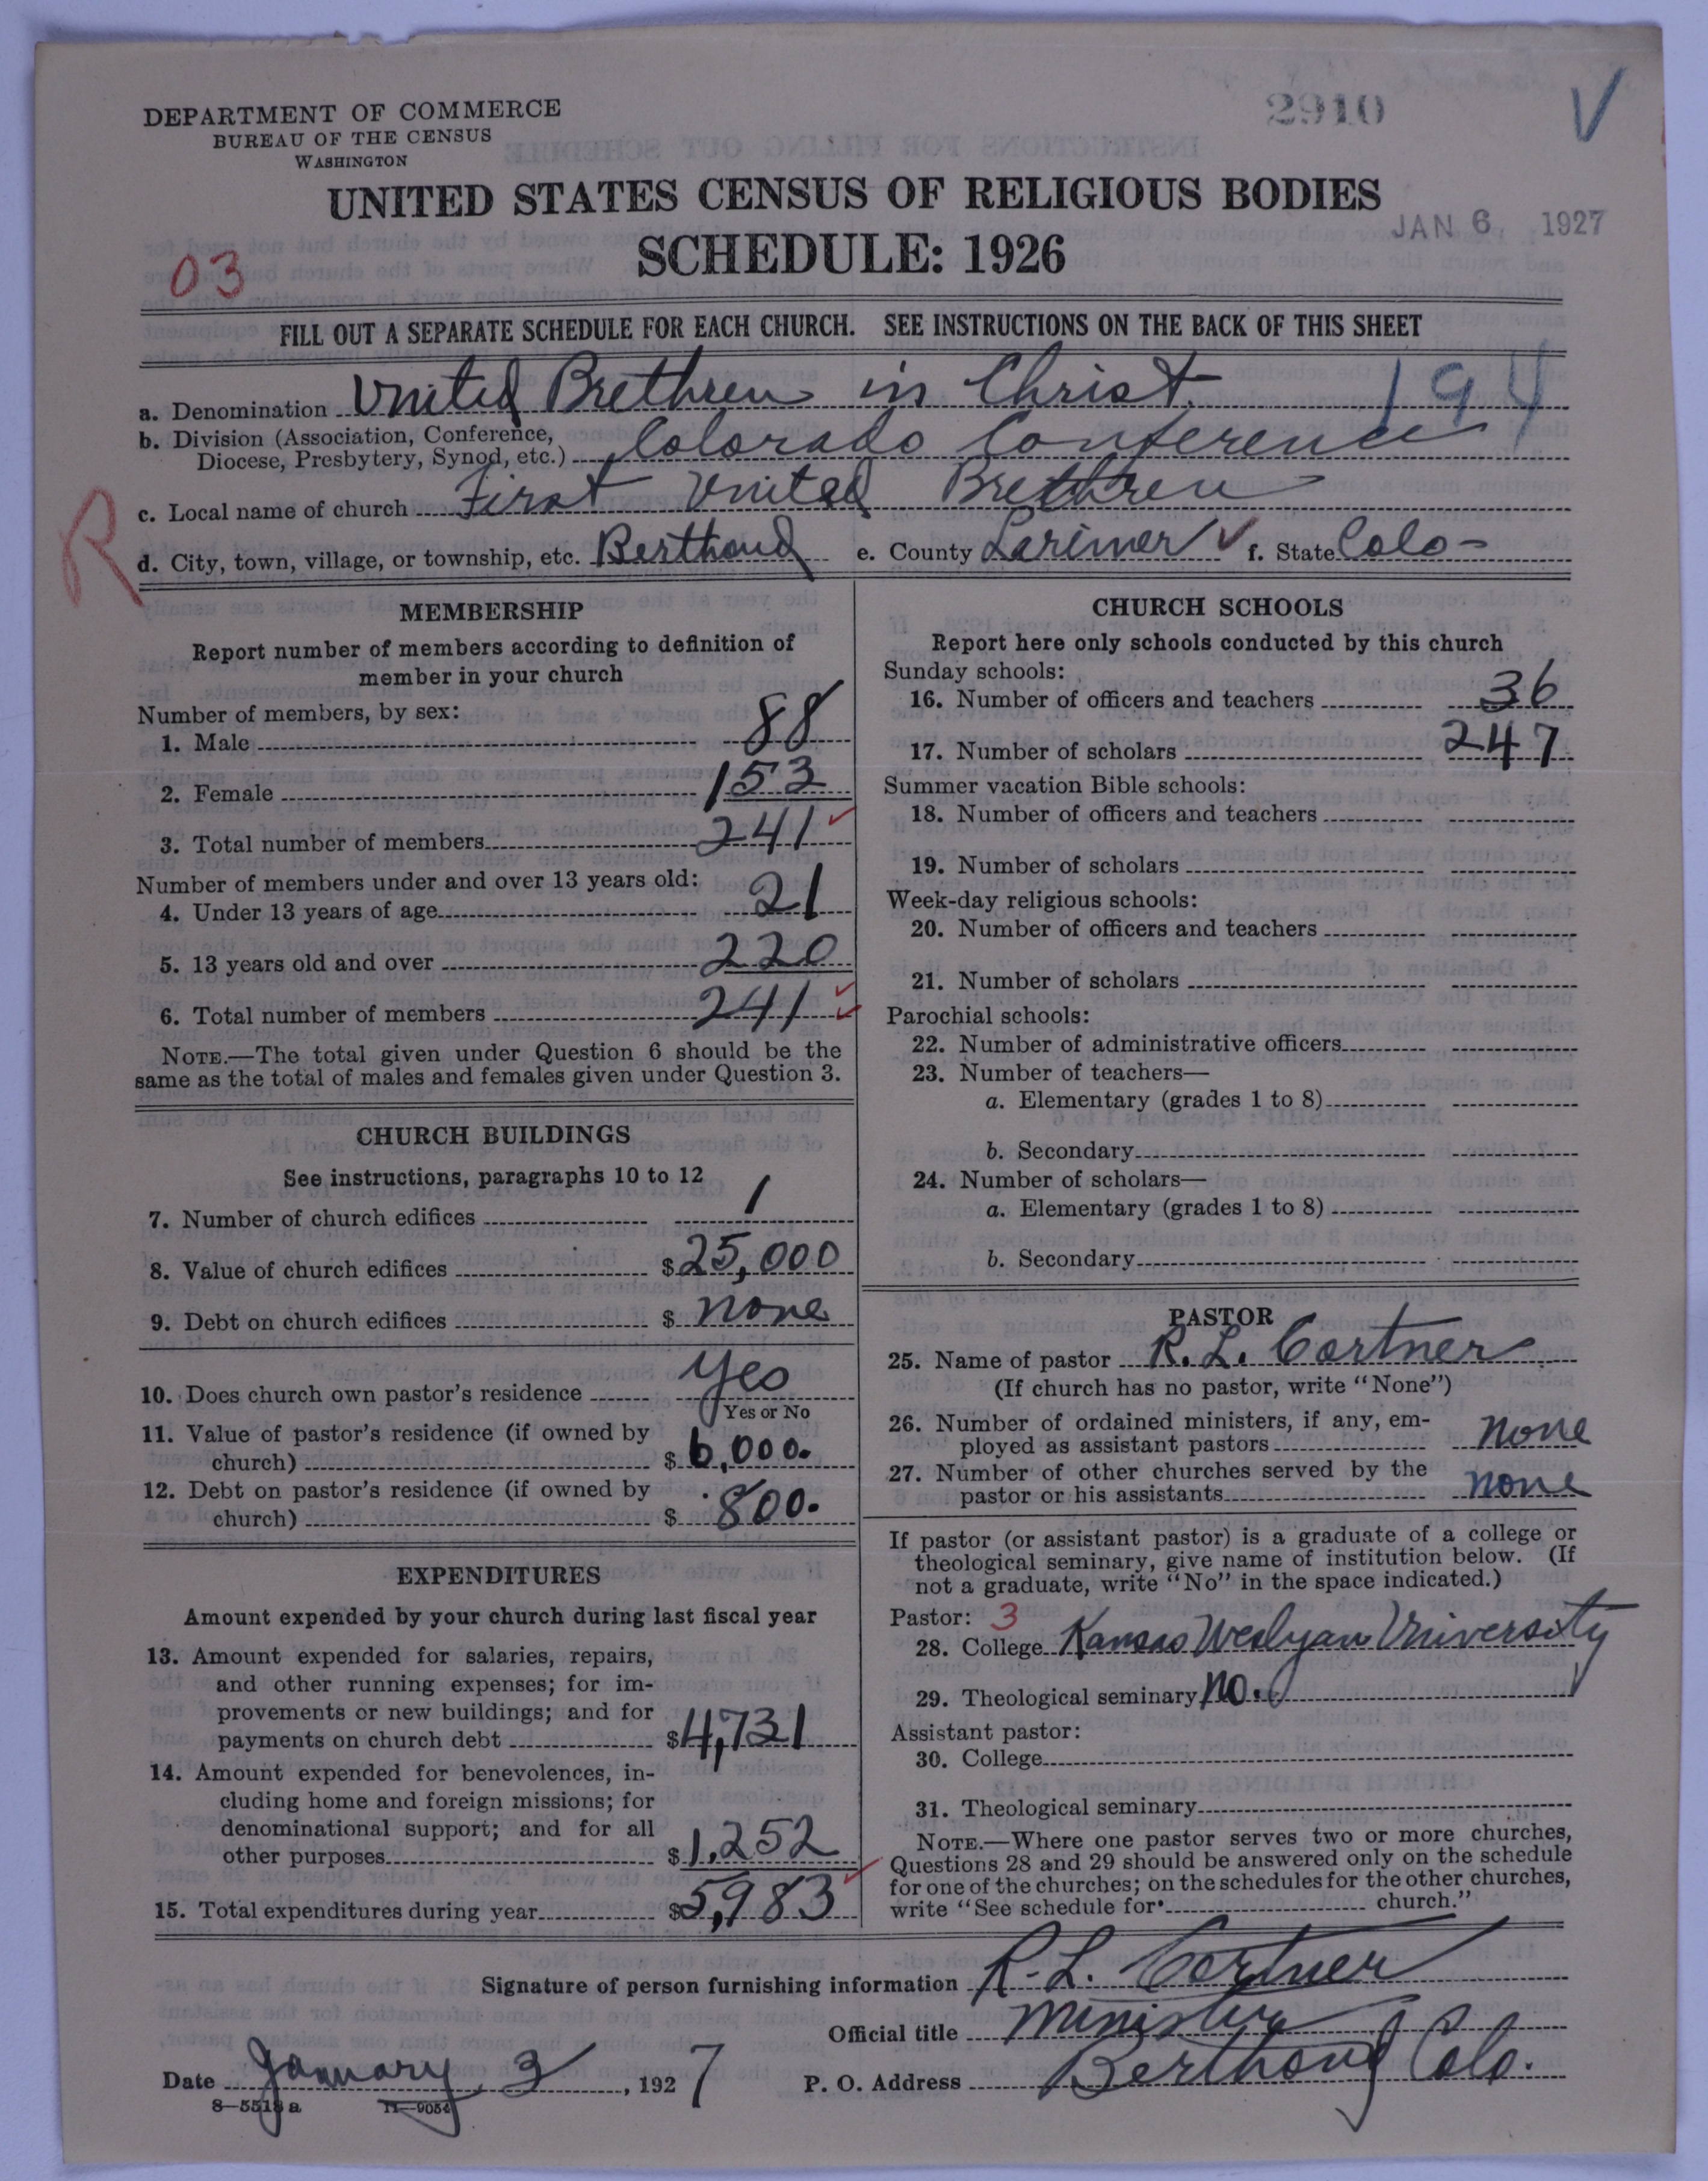 DEPARTMENT OF COMMERCE
BUREAU OF THE CENSUS
WASHINGTON
2910
V
UNITED STATES CENSUS OF RELIGIOUS BODIES
JAN 6 1927
SCHEDULE: 1926
03
FILL OUT A SEPARATE SCHEDULE FOR EACH CHURCH. SEE INSTRUCTIONS ON THE BACK OF THIS SHEET
a. Denomination United Brethren in Christ.
b. Division (Association, Conference,
Diocese, Presbytery, Synod, etc.) Colorado Conference
c. Local name of church First United Brethren
R
d. City, town, village, or township, etc. Berthoud e. County Larimer f. State Colo-
MEMBERSHIP
Report number of members according to definition of
member in your church
Number of members, by sex:
1. Male 88
2. Female 153
3. Total number of members 241
Number of members under and over 13 years old:
4. Under 13 years of age 21
5. 13 years old and over 220
6. Total number of members 241
NOTE.—The total given under Question 6 should be the
same as the total of males and females given under Question 3.
CHURCH BUILDINGS
See instructions, paragraphs 10 to 12
7. Number of church edifices 1
8. Value of church edifices $25,000
9. Debt on church edifices $ none
10. Does church own pastor's residence Yes
Yes or No
11. Value of pastor's residence (if owned by
church) $6,000.
12. Debt on pastor's residence (if owned by
church) $ 800.
EXPENDITURES
Amount expended by your church during last fiscal year
13. Amount expended for salaries, repairs,
and other running expenses; for im-
provements or new buildings; and for
payments on church debt $4,731
14. Amount expended for benevolences, in-
cluding home and foreign missions; for
denominational support; and for all
other purposes $1,252
15. Total expenditures during year $5,983
CHURCH SCHOOLS
Report here only schools conducted by this church
Sunday schools:
16. Number of officers and teachers 36
17. Number of scholars 247
Summer vacation Bible schools:
18. Number of officers and teachers
19. Number of scholars
Week-day religious schools:
20. Number of officers and teachers
21. Number of scholars
Parochial schools:
22. Number of administrative officers
23. Number of teachers—
a. Elementary (grades 1 to 8)
b. Secondary
24. Number of scholars—
a. Elementary (grades 1 to 8)
b. Secondary
PASTOR
25. Name of pastor R. L. Cortner
(If church has no pastor, write "None")
26. Number of ordained ministers, if any, em-
ployed as assistant pastors none
27. Number of other churches served by the
pastor or his assistants none
If pastor (or assistant pastor) is a graduate of a college or
theological seminary, give name of institution below. (If
not a graduate, write "No" in the space indicated.)
Pastor: 3
28. College Kansas Weslyan University
29. Theological seminary No.
Assistant pastor:
30. College
31. Theological seminary
NOTE.—Where one pastor serves two or more churches,
Questions 28 and 29 should be answered only on the schedule
for one of the churches; on the schedules for the other churches,
write "See schedule for church."
Signature of person furnishing information R. L. Cortner
Official title Minister
Date January 3, 1927 P. O. Address Berthoud Colo.
8—5518 a 11—9054